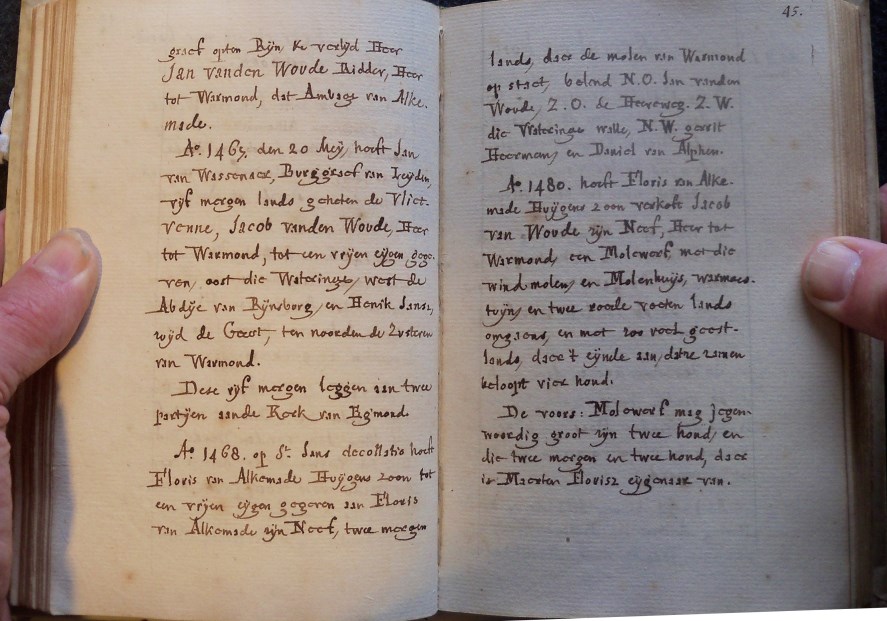 graef opten Rijn te verlijd Heer
Jan vanden Woude Ridder, Heer
tot Warmond, dat Ambage van Alke-
made.
Ao. 1465. den 20 Meij, heeft Jan
van Wassenaer, Burggraef van Leijden,
vijf mergen lands geheten de Vliet-
venne, Jacob vanden Woude, Heer
tot Warmond, tot een vrijen eijgen gege-
ven, oost die Wateringe, west de
Abdije van Rijnsborg, en Henik Jansz,
wijd de Geest, ten noorden de Zusteren
van Warmond.
Dese vijf mergen leggen aan twee
partijen aande Kerk van Egmond.
Ao. 1468. op St. Jans decollatio heeft
Floris van Alkemade Huijgens zoon tot
een vrijen eijgen gegeven aan Floris
van Alkemade zijn Neef, twee mergen
45.
lands, daer de molen van Warmond
op staet, belend N.O. Jan vanden
Woude, Z.O. de Heereweg. Z.W.
die Wateringe walle, N.W. gerrit
Heerman, en Daniel van Alphen.
Ao. 1480. heeft Floris van Alke-
made Huijgens zoon verkoft Jacob
van Woude zijn Neef, Heer tot
Warmond, een Molewerf, met die
wind molen, en Molenhuijs, warmoes-
tuijn, en twee roede voeten lands
omgaens, en met 200 roed geest-
lands, daer 't eijnde aan, dat te zamen
beloopt vier hond.
De voors: Molewerf mag jegen-
woordig groot zijn twee hond, en
die twee mergen en twee hond, daer
is Maerten Florisz eijgenaer van.